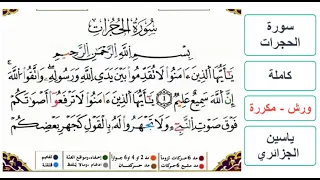 سُورَةُ الْحُجُرَاتِ
بِسْمِ اِللَّهِ اِلرَّحْمَٰنِ اِلرَّحِيمِ
يَٰٓأَيُّهَا اَلذِينَ ءَامَنُواْ لَا تُقَدِّمُواْ بَيْنَ يَدَيِ اِللَّهِ وَرَسُولِهِۦ وَاتَّقُواْ اُللَّهَ
إِنَّ اَللَّهَ سَمِيعٌ عَلِيمٌ ١ يَٰٓأَيُّهَا اَلذِينَ ءَامَنُواْ لَا تَرْفَعُوٓاْ أَصْوَٰتَكُمْ
فَوْقَ صَوْتِ اِلنَّبِيٓءِ وَلَا تَجْهَرُواْ لَهُۥ بِالْقَوْلِ كَجَهْرِ بَعْضِكُمْ
سورة
الحجرات
كاملة
ورش - مكررة
ياسين
الجزائري